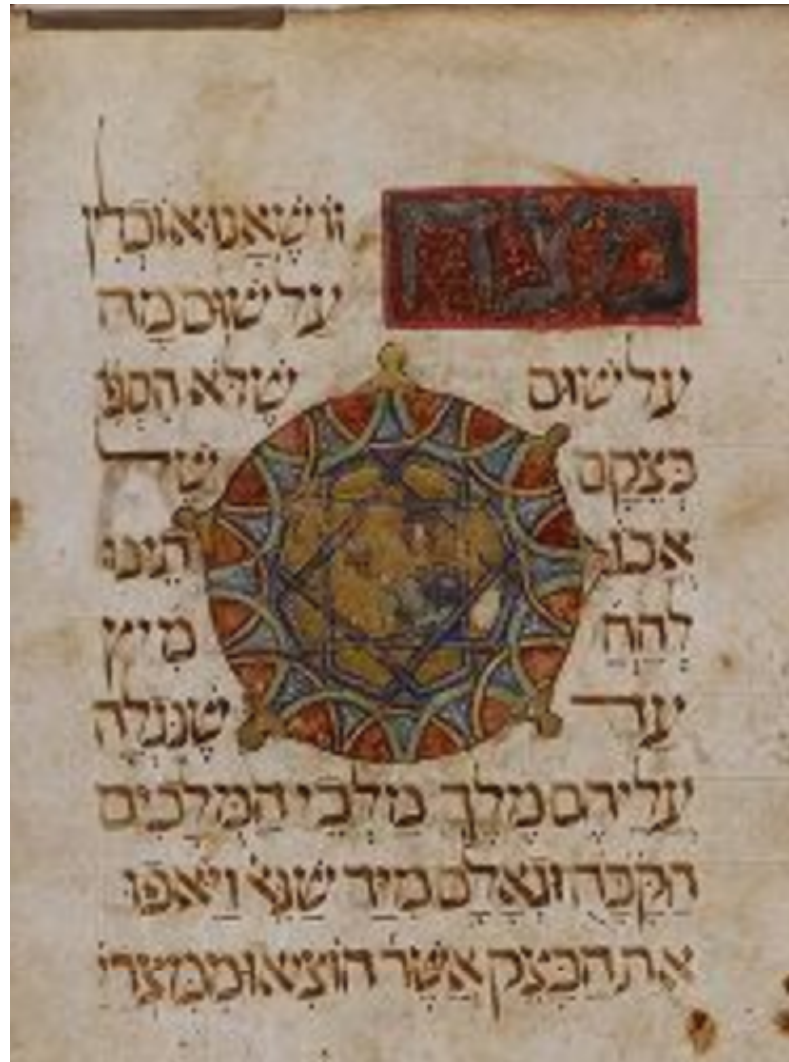 מצה זו שאנו אוכלין
על שום מה
על שום שלא הספי
בצקם של
אבו תינו
להח מיץ
עד שנגלה
עליהם מלך מלכי המלכים
הקבה וגאלם מיד שנא ויאפו
את הבצק אשר הוציאו ממצרי